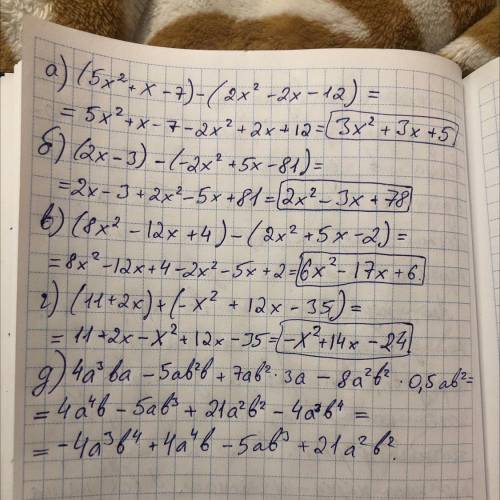 а) (5x² + x - 7) - (2x² - 2x - 12) =
= 5x² + x - 7 - 2x² + 2x + 12 = 3x² + 3x + 5
б) (2x - 3) - (-2x² + 5x - 81) =
= 2x - 3 + 2x² - 5x + 81 = 2x² - 3x + 78
в) (8x² - 12x + 4) - (2x² + 5x - 2) =
= 8x² - 12x + 4 - 2x² - 5x + 2 = 6x² - 17x + 6.
г) (11 + 2x) + (-x² + 12x - 35) =
= 11 + 2x - x² + 12x - 35 = -x² + 14x - 24
д) 4a³ba - 5ab²b + 7ab² · 3a - 8a²b² · 0,5ab² =
= 4a⁴b - 5ab³ + 21a²b² - 4a³b⁴ =
= -4a³b⁴ + 4a⁴b - 5ab³ + 21a²b².